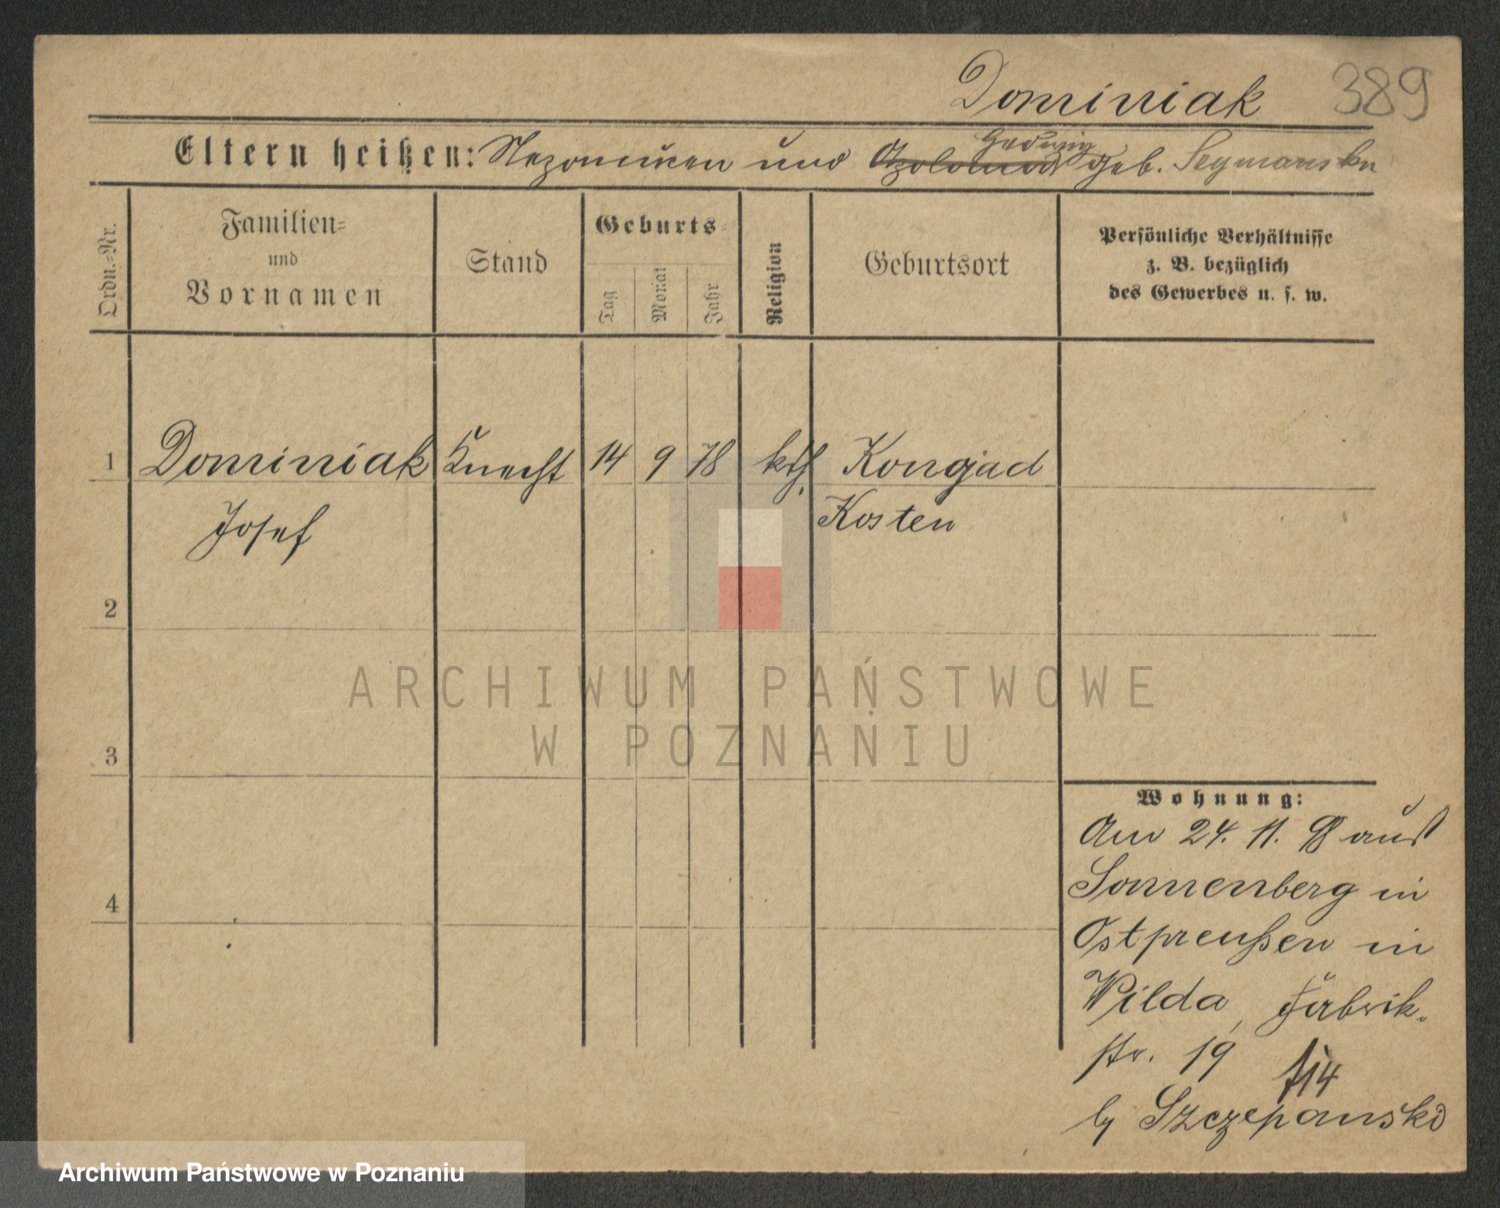 Dominiak 389
Hedwig
Eltern heißen: Nepomucen und geb. Szymanska
Ordn.-Nr.
Familien-
und
Vornamen
Stand
Geburts-
Tag
Monat
Jahr
Religion
Geburtsort
Persönliche Verhältnisse
z. B. bezüglich
des Gewerbes u. s. w.
1 Dominiak Knecht 14 9 78 kth. Konojad
Josef Kosten
2
3
4
Wohnung:
Am 24. 11. 98 aus
Sonnenberg in
Ostpreußen in
Wilda, Fabrik-
str. 19
b/ Szczepanski
ARCHIWUM PAŃSTWOWE
W POZNANIU
Archiwum Państwowe w Poznaniu